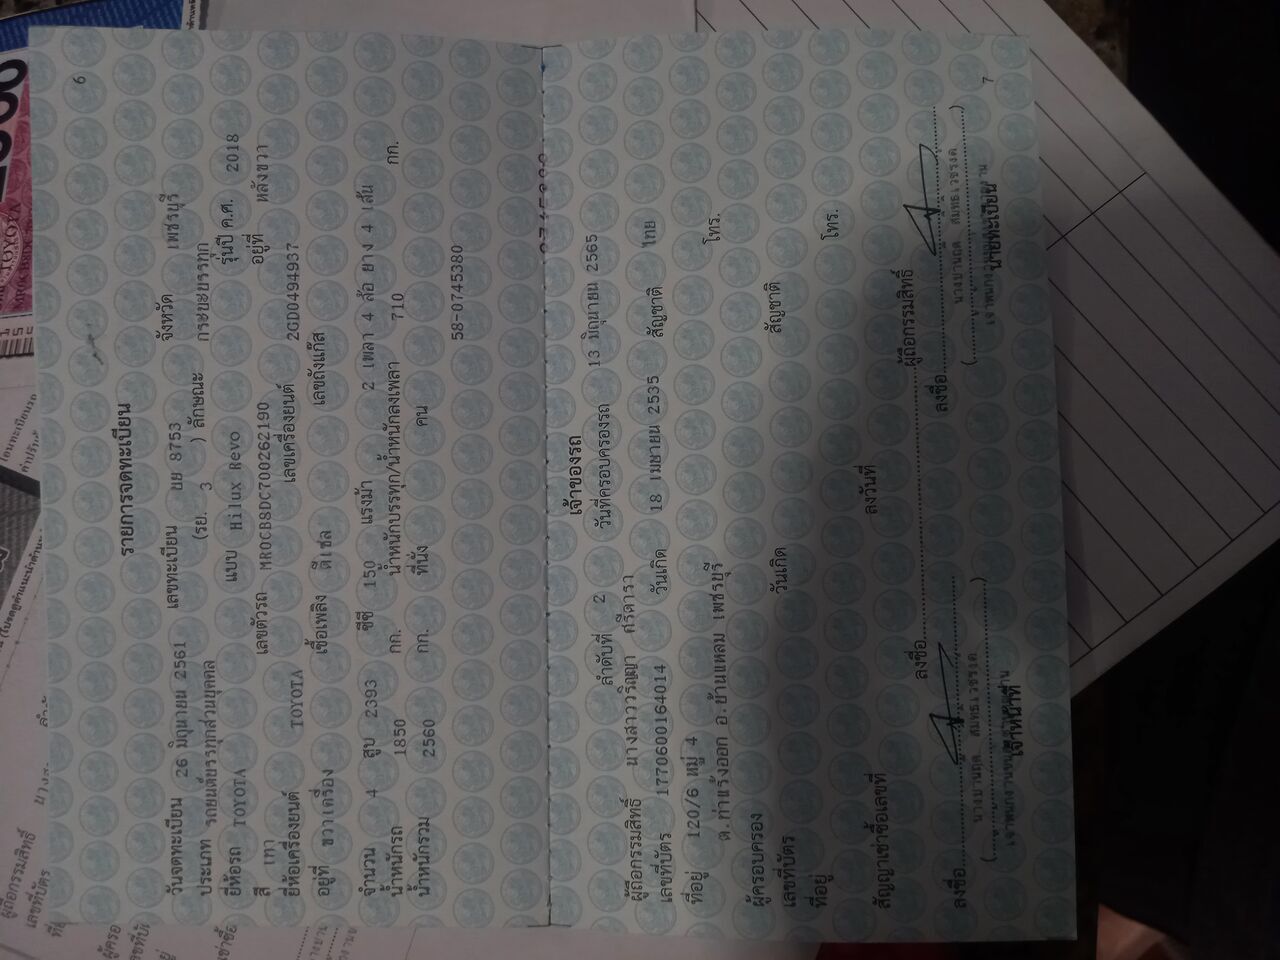 6
รายการจดทะเบียน
วันจดทะเบียน 26 มิถุนายน 2561 เลขทะเบียน ผย 8753 จังหวัด เพชรบุรี
ประเภท รถยนต์บรรทุกส่วนบุคคล (รย. 3 ) ลักษณะ กระบะบรรทุก
ยี่ห้อรถ TOYOTA แบบ Hilux Revo รุ่นปี ค.ศ. 2018
สี เทา เลขตัวรถ MR0CB8DC700262190 อยู่ที่ หลังขวา
ยี่ห้อเครื่องยนต์ TOYOTA เลขเครื่องยนต์ 2GD0494937
อยู่ที่ ขวาเครื่อง เชื้อเพลิง ดีเซล เลขถังแก๊ส
จำนวน 4 สูบ 2393 ซีซี 150 แรงม้า 2 เพลา 4 ล้อ ยาง 4 เส้น
น้ำหนักรถ 1850 กก. น้ำหนักบรรทุก/น้ำหนักลงเพลา 710 กก.
น้ำหนักรวม 2560 กก. ที่นั่ง คน
58-0745380
เจ้าของรถ
ลำดับที่ 2 วันที่ครอบครองรถ 13 มิถุนายน 2565
ผู้ถือกรรมสิทธิ์ นางสาววริญญา ศรีดารา
เลขที่บัตร 1770600164014 วันเกิด 18 เมษายน 2535 สัญชาติ ไทย
ที่อยู่ 120/6 หมู่ 4
ต.ท่าแร้งออก อ.บ้านแหลม เพชรบุรี โทร.
ผู้ครอบครอง
เลขที่บัตร วันเกิด สัญชาติ
ที่อยู่ โทร.
สัญญาเช่าซื้อเลขที่ ลงวันที่
ลงชื่อ ผู้ถือกรรมสิทธิ์
ลงชื่อ ลงชื่อ
เจ้าหน้าที่ นายทะเบียน
7
TOYOTA
ผู้ถือกรรมสิทธิ์
เลขที่บัตร